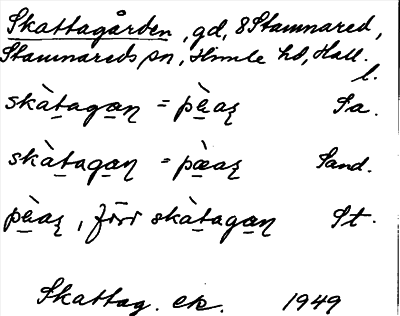 Skattagården, gd, 8 Stamnared,
Stamnareds sn, Himle hd, Hall.
l.
skàtagan = pèaʀ Sa.
skàtagan = pæ̀aʀ Sand.
pèaʀ, förr skàtagan St.
Skattag. ek. 1949